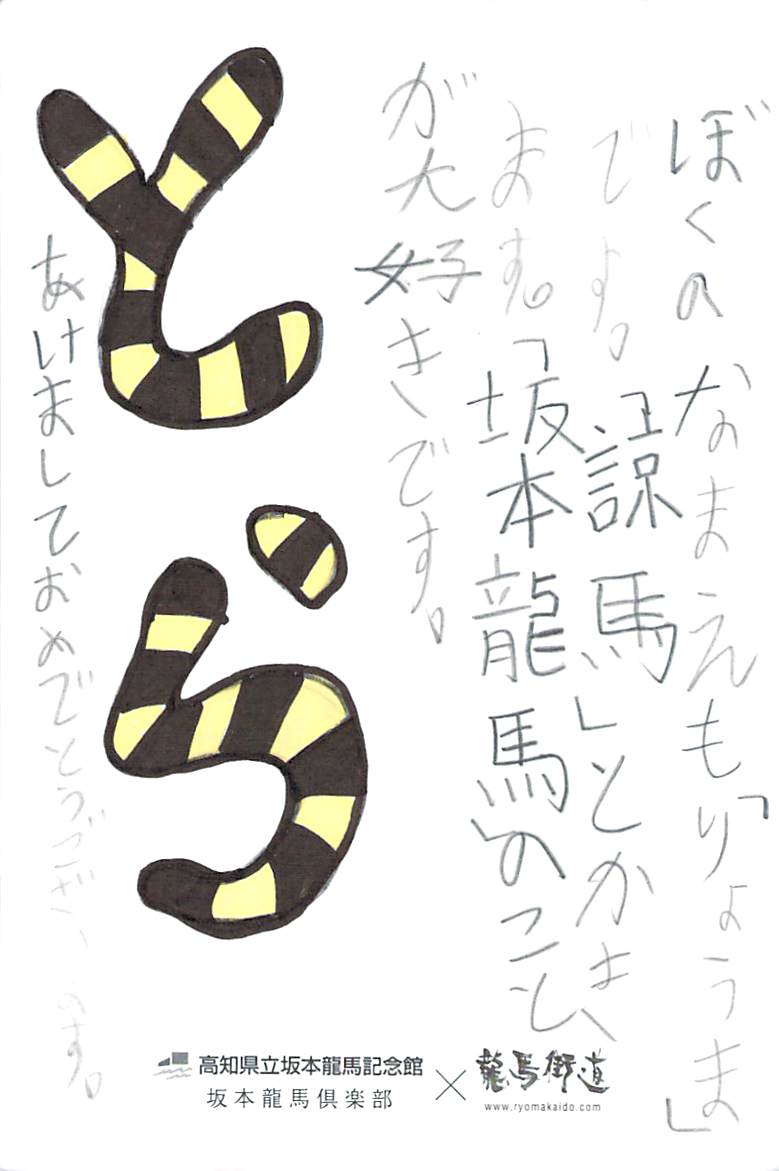 ぼくのなまえも「りょうま」
です。「諒馬」とかき
ます。「坂本龍馬」のこと
が大好きです。
とら
あけましておめでとうございます。
高知県立坂本龍馬記念館
坂本龍馬倶楽部
×
龍馬街道
www.ryomakaido.com